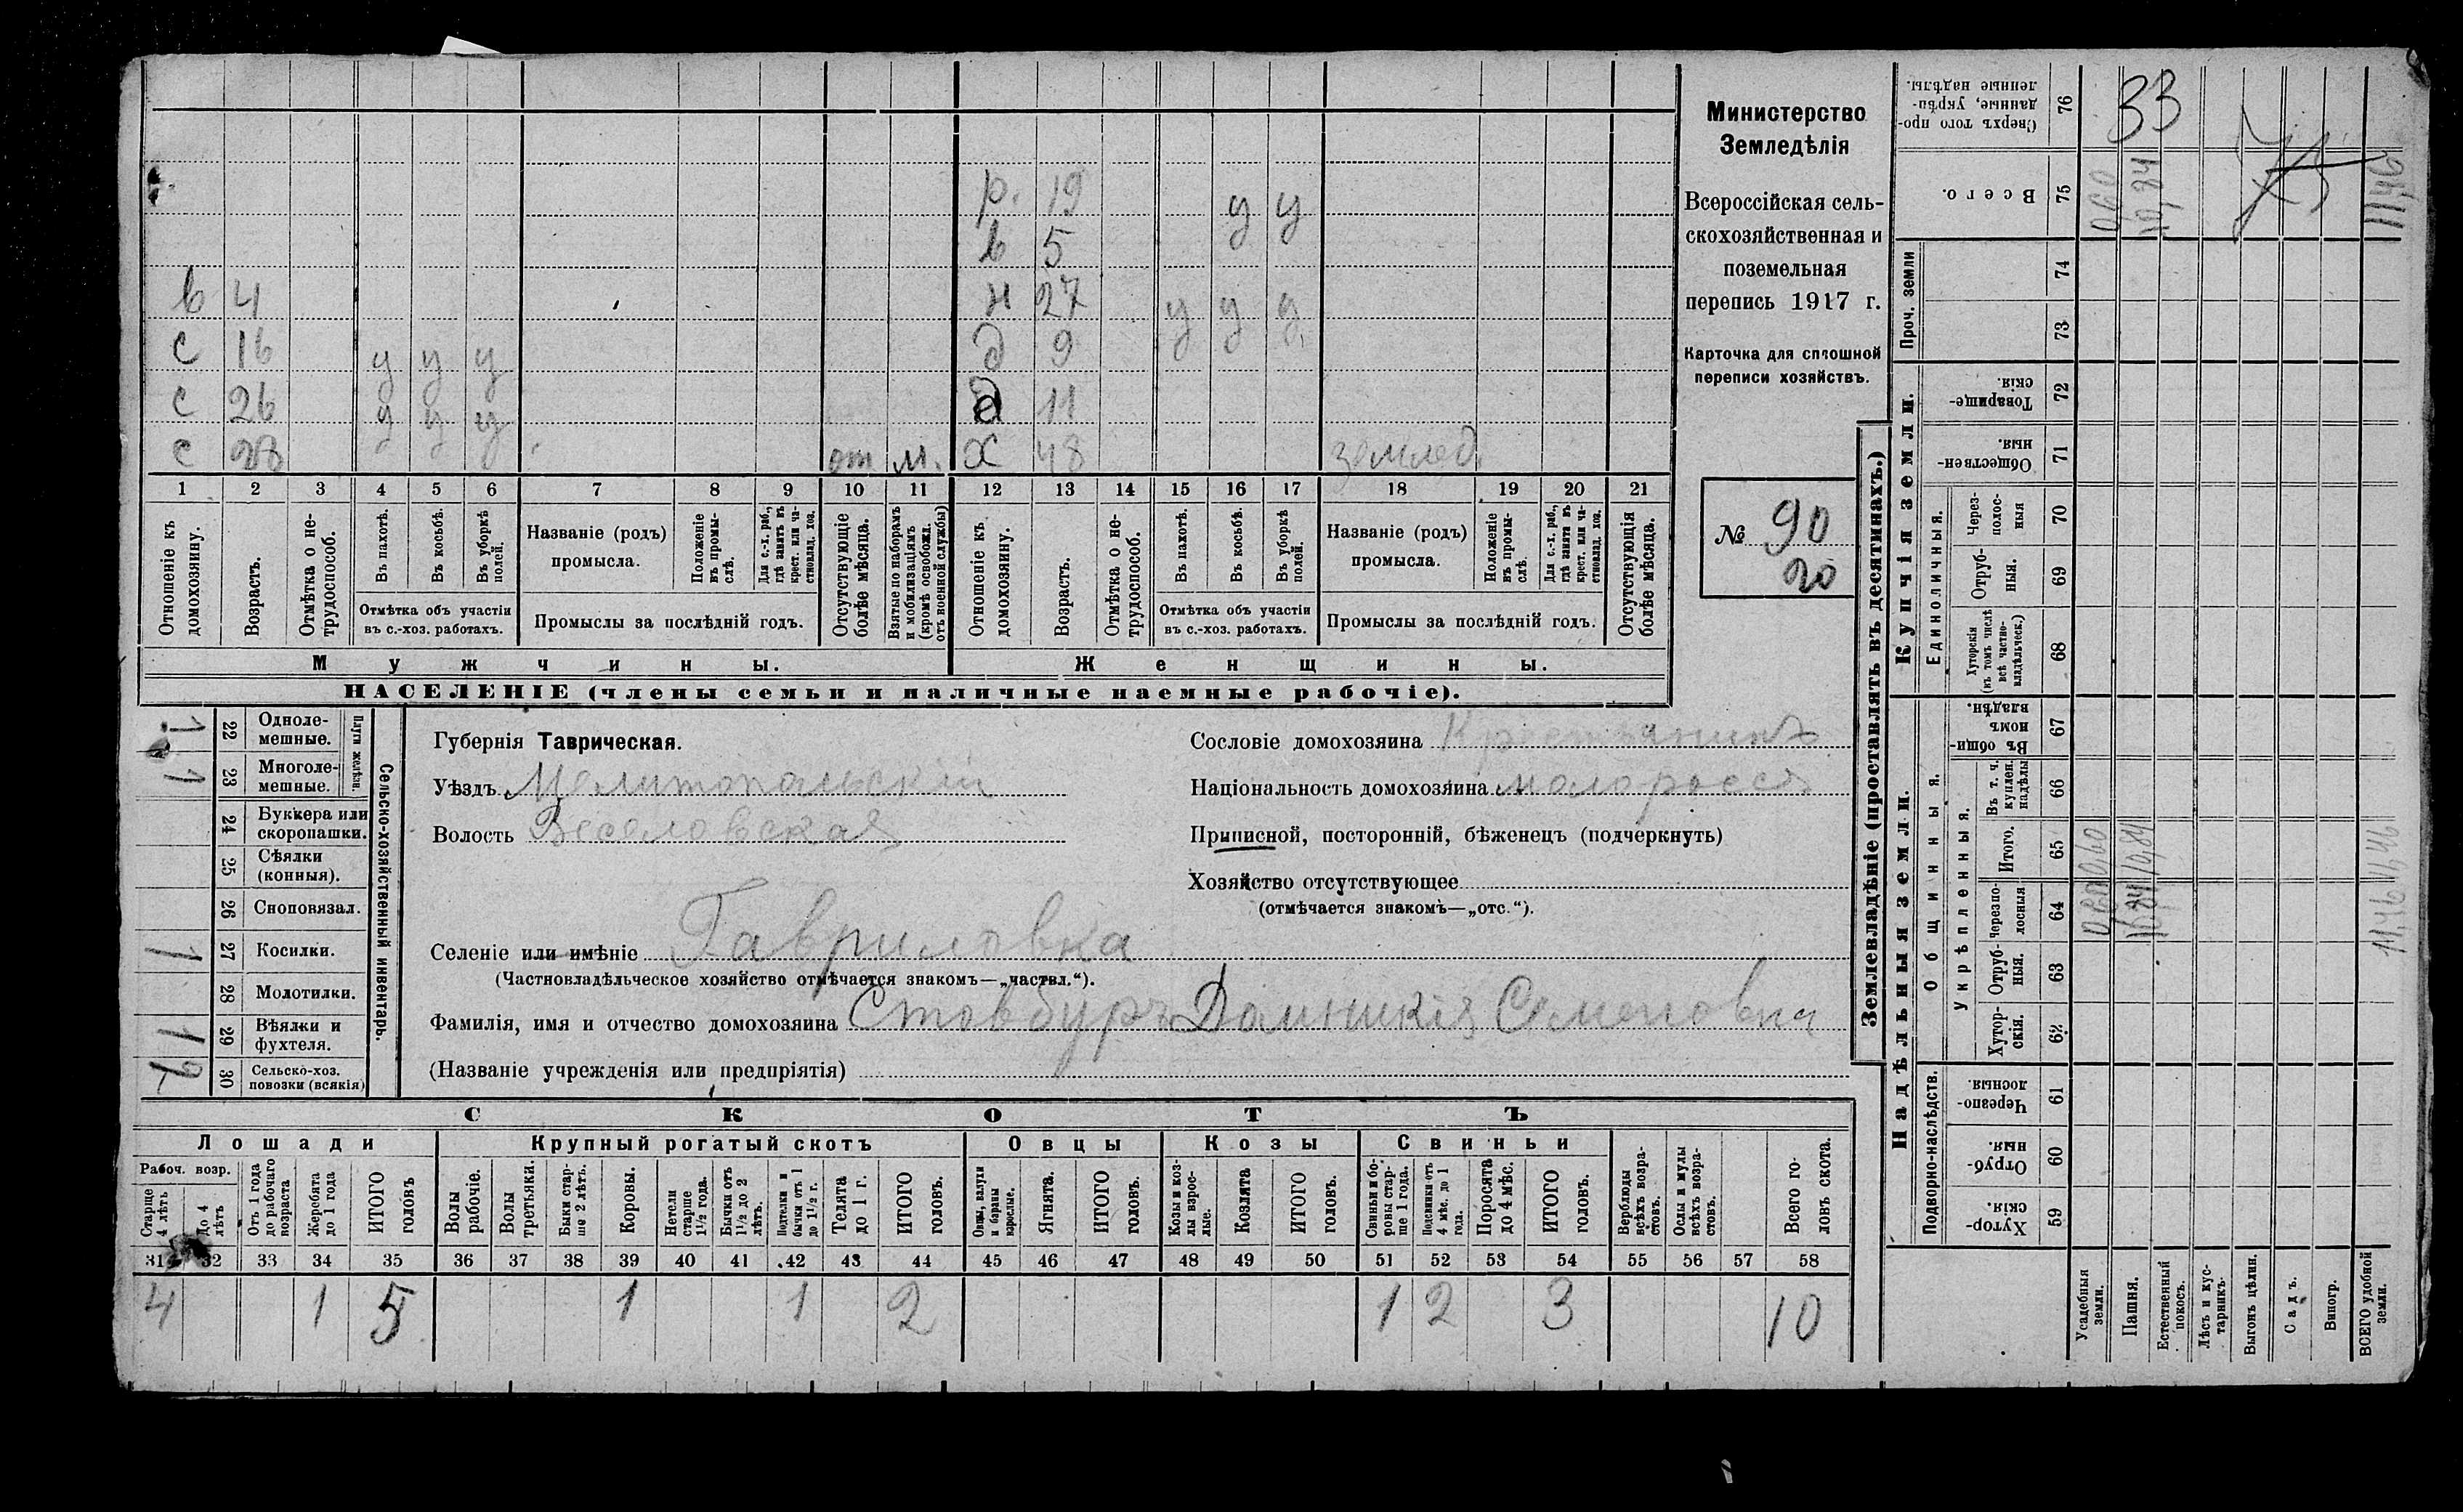 Министерство
Земледѣлія
Всероссійская сель-
скохозяйственная и
поземельная
перепись 1917 г.
Карточка для сплошной
переписи хозяйствъ.
№ 90
20
р. 19 у у
в 5
в 4 н 27 у у у
с 16 у у у д 9
с 26 у у у д 11
с 28 от м. х 48 землед.
1 2 3 4 5 6 7 8 9 10 11 12 13 14 15 16 17 18 19 20 21
Отношеніе къ домохозяину.
Возрастъ.
Отмѣтка о не-трудоспособ.
Въ пахотѣ.
Въ косьбѣ.
Въ уборкѣ полей.
Отмѣтка объ участіи
въ с.-хоз. работахъ.
Названіе (родъ)
промысла.
Положеніе въ промы-слѣ.
Для с.-х. раб., гдѣ занятъ въ крест. или ча-стновлад. хоз.
Промыслы за послѣдній годъ.
Отсутствующіе болѣе мѣсяца.
Взятые по наборамъ и мобилизаціямъ (кромѣ освобожд. отъ военной службы)
Отношеніе къ домохозяину.
Возрастъ.
Отмѣтка о не-трудоспособ.
Въ пахотѣ.
Въ косьбѣ.
Въ уборкѣ полей.
Отмѣтка объ участіи
въ с.-хоз. работахъ.
Названіе (родъ)
промысла.
Положеніе въ промы-слѣ.
Для с.-х. раб., гдѣ занятъ въ крест. или ча-стновлад. хоз.
Промыслы за послѣдній годъ.
Отсутствующія болѣе мѣсяца.
Мужчины. Женщины.
НАСЕЛЕНІЕ (члены семьи и наличные наемные рабочіе).
Сельско-хозяйственный инвентарь.
Плуги желѣзн.
1 22 Одноле-мешные.
1 23 Многоле-мешные.
24 Буккера или скоропашки.
25 Сѣялки (конныя).
26 Сноповязал.
1 27 Косилки.
28 Молотилки.
1 29 Вѣялки и фухтеля.
30 Сельско-хоз. повозки (всякія)
Губернія Таврическая.
Уѣздъ Мелитопольскій
Волость Веселовская
Сословіе домохозяина Крестьянинъ
Національность домохозяина малороссъ
Приписной, посторонній, бѣженецъ (подчеркнуть)
Хозяйство отсутствующее
(отмѣчается знакомъ—„отс.“).
Селеніе или имѣніе Гавриловка
(Частновладѣльческое хозяйство отмѣчается знакомъ—„частвл.“).
Фамилія, имя и отчество домохозяина Стовбуръ Домникія Семеновна
(Названіе учрежденія или предпріятія)
СКОТЪ
Лошади Крупный рогатый скотъ Овцы Козы Свиньи
Рабоч. возр.
Старше 4 лѣтъ
До 4 лѣтъ
Отъ 1 года до рабочаго возраста
Жеребята до 1 года
ИТОГО головъ
Волы рабочіе.
Волы третьяки.
Быки стар-ше 2 лѣтъ.
Коровы.
Нетели старше 1½ года.
Бычки отъ 1½ до 2 лѣтъ.
Подтелки и бычки отъ 1 до 1½ г.
Телята до 1 г.
ИТОГО головъ.
Овцы, валухи и бараны взрослые.
Ягнята.
ИТОГО головъ.
Козы и коз-лы взрос-лые.
Козлята
ИТОГО головъ.
Свиньи и бо-ровы стар-ше 1 года.
Подсвинки отъ 4 мѣс. до 1 года.
Поросята до 4 мѣс.
ИТОГО головъ.
Верблюды всѣхъ возра-стовъ.
Ослы и мулы всѣхъ возра-стовъ.
Всего го-ловъ скота.
31 32 33 34 35 36 37 38 39 40 41 42 43 44 45 46 47 48 49 50 51 52 53 54 55 56 57 58
4 1 5 1 1 2 1 2 3 10
Землевладѣніе (проставлять въ десятинахъ.)
Надѣльныя земли. Купчія земли. Проч. земли
Подворно-наслѣдств.
Общинныя.
Укрѣпленныя.
Единоличныя.
59 Хутор-скія.
60 Отруб-ныя.
61 Черезпо-лосныя
62 Хутор-скія.
63 Отруб-ныя.
64 Черезпо-лосныя
65 Итого.
66 Въ т. ч. куплен. надѣлы
67 Въ общи-номъ владѣн.
68 Хуторскія (въ томъ числѣ всѣ частно-владѣльческ.)
69 Отруб-ныя.
70 Через-полос-ныя
71 Обществен-ныя.
72 Товарище-скія.
73
74
75 Всего.
76 Сверхъ того про-данные, укрѣп-ленные надѣлы.
Усадебныя земли. 0,60
Пашня. 10,84 33
Естественный покосъ.
Лѣсъ и кус-тарникъ.
Выгонъ цѣлин.
Садъ.
Виногр.
ВСЕГО удобной земли. 11,46 11,46 11,46